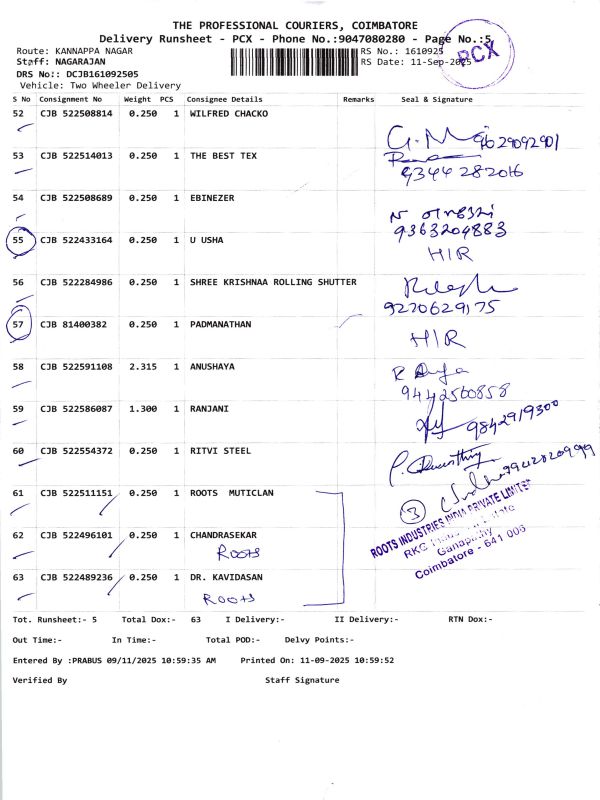 THE PROFESSIONAL COURIERS, COIMBATORE
Delivery Runsheet - PCX - Phone No.:9047080280 - Page No.:5
Route: KANNAPPA NAGAR RS No.: 1610925
Staff: NAGARAJAN RS Date: 11-Sep-2025
PCX
DRS No:: DCJB161092505
Vehicle: Two Wheeler Delivery
S No Consignment No Weight PCS Consignee Details Remarks Seal & Signature
52 CJB 522508814 0.250 1 WILFRED CHACKO
9629092901
53 CJB 522514013 0.250 1 THE BEST TEX
9344282016
54 CJB 522508689 0.250 1 EBINEZER
9363204883
55 CJB 522433164 0.250 1 U USHA
H/R
56 CJB 522284986 0.250 1 SHREE KRISHNAA ROLLING SHUTTER
9220629175
57 CJB 81400382 0.250 1 PADMANATHAN
H/R
58 CJB 522591108 2.315 1 ANUSHAYA
9442560858
59 CJB 522586087 1.300 1 RANJANI
9842919300
60 CJB 522554372 0.250 1 RITVI STEEL
61 CJB 522511151 0.250 1 ROOTS MUTICLAN
3
ROOTS INDUSTRIES INDIA PRIVATE LIMITED
62 CJB 522496101 0.250 1 CHANDRASEKAR
ROOTS
Ganapathy
Coimbatore - 641 006
63 CJB 522489236 0.250 1 DR. KAVIDASAN
ROOTS
Tot. Runsheet:- 5 Total Dox:- 63 I Delivery:- II Delivery:- RTN Dox:-
Out Time:- In Time:- Total POD:- Delvy Points:-
Entered By :PRABUS 09/11/2025 10:59:35 AM Printed On: 11-09-2025 10:59:52
Verified By Staff Signature